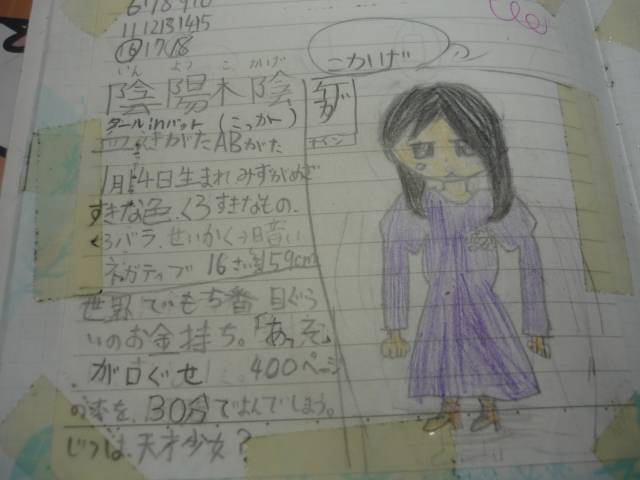 6 7 8 9 10
11 12 13 14 15
16 17 18
こかげ
いん よう こ かげ
陰陽木陰
タール in バット (こっかト)
えきがた ABがた
サイン
1月14日生まれ みずがめざ
すきな色.くろ すきなもの.
くろバラ.せいかく→暗い
ネガティブ 16さい 159cm
世界でもち番目ぐら
いのお金持ち。「あっそ」
が口ぐせ。400ページ
の本を、30分でよんでしまう。
じつは、天才少女?